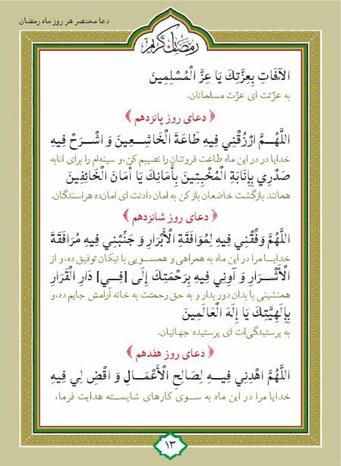 دعا مختصر هر روز ماه رمضان
رمضان کریم
الآفَاتِ بِعِزَّتِكَ يَا عِزَّ الْمُسْلِمِينَ
به عزّتت ای عزّت مسلمانان.
﴿ دعای روز پانزدهم ﴾
اللَّهُمَّ ارْزُقْنِي فِيهِ طَاعَةَ الْخَاشِعِينَ وَ اشْرَحْ فِيهِ
خدایا در این ماه طاعت فروتنان را نصیبم کن، و سینه‌ام را برای انابه
صَدْرِي بِإِنَابَةِ الْمُخْبِتِينَ بِأَمَانِكَ يَا أَمَانَ الْخَائِفِينَ
همانند بازگشت خاضعان باز کن به امان دادنت ای امان‌ده هراسندگان.
﴿ دعای روز شانزدهم ﴾
اللَّهُمَّ وَفِّقْنِي فِيهِ لِمُوَافَقَةِ الْأَبْرَارِ وَ جَنِّبْنِي فِيهِ مُرَافَقَةَ
خدایا مرا در این ماه به همراهی و همسویی با نیکان توفیق ده، و از
الْأَشْرَارِ وَ آوِنِي فِيهِ بِرَحْمَتِكَ إِلَى [فِي] دَارِ الْقَرَارِ
همنشینی با بدان دور بدار و به حق رحمتت به خانه آرامش جایم ده، و
بِإِلَهِيَّتِكَ يَا إِلَهَ الْعَالَمِينَ
به پرستیدگی‌ات ای پرستیده جهانیان.
﴿ دعای روز هفدهم ﴾
اللَّهُمَّ اهْدِنِي فِيهِ لِصَالِحِ الْأَعْمَالِ وَ اقْضِ لِي فِيهِ
خدایا مرا در این ماه به سوی کارهای شایسته هدایت فرما،
۱۳